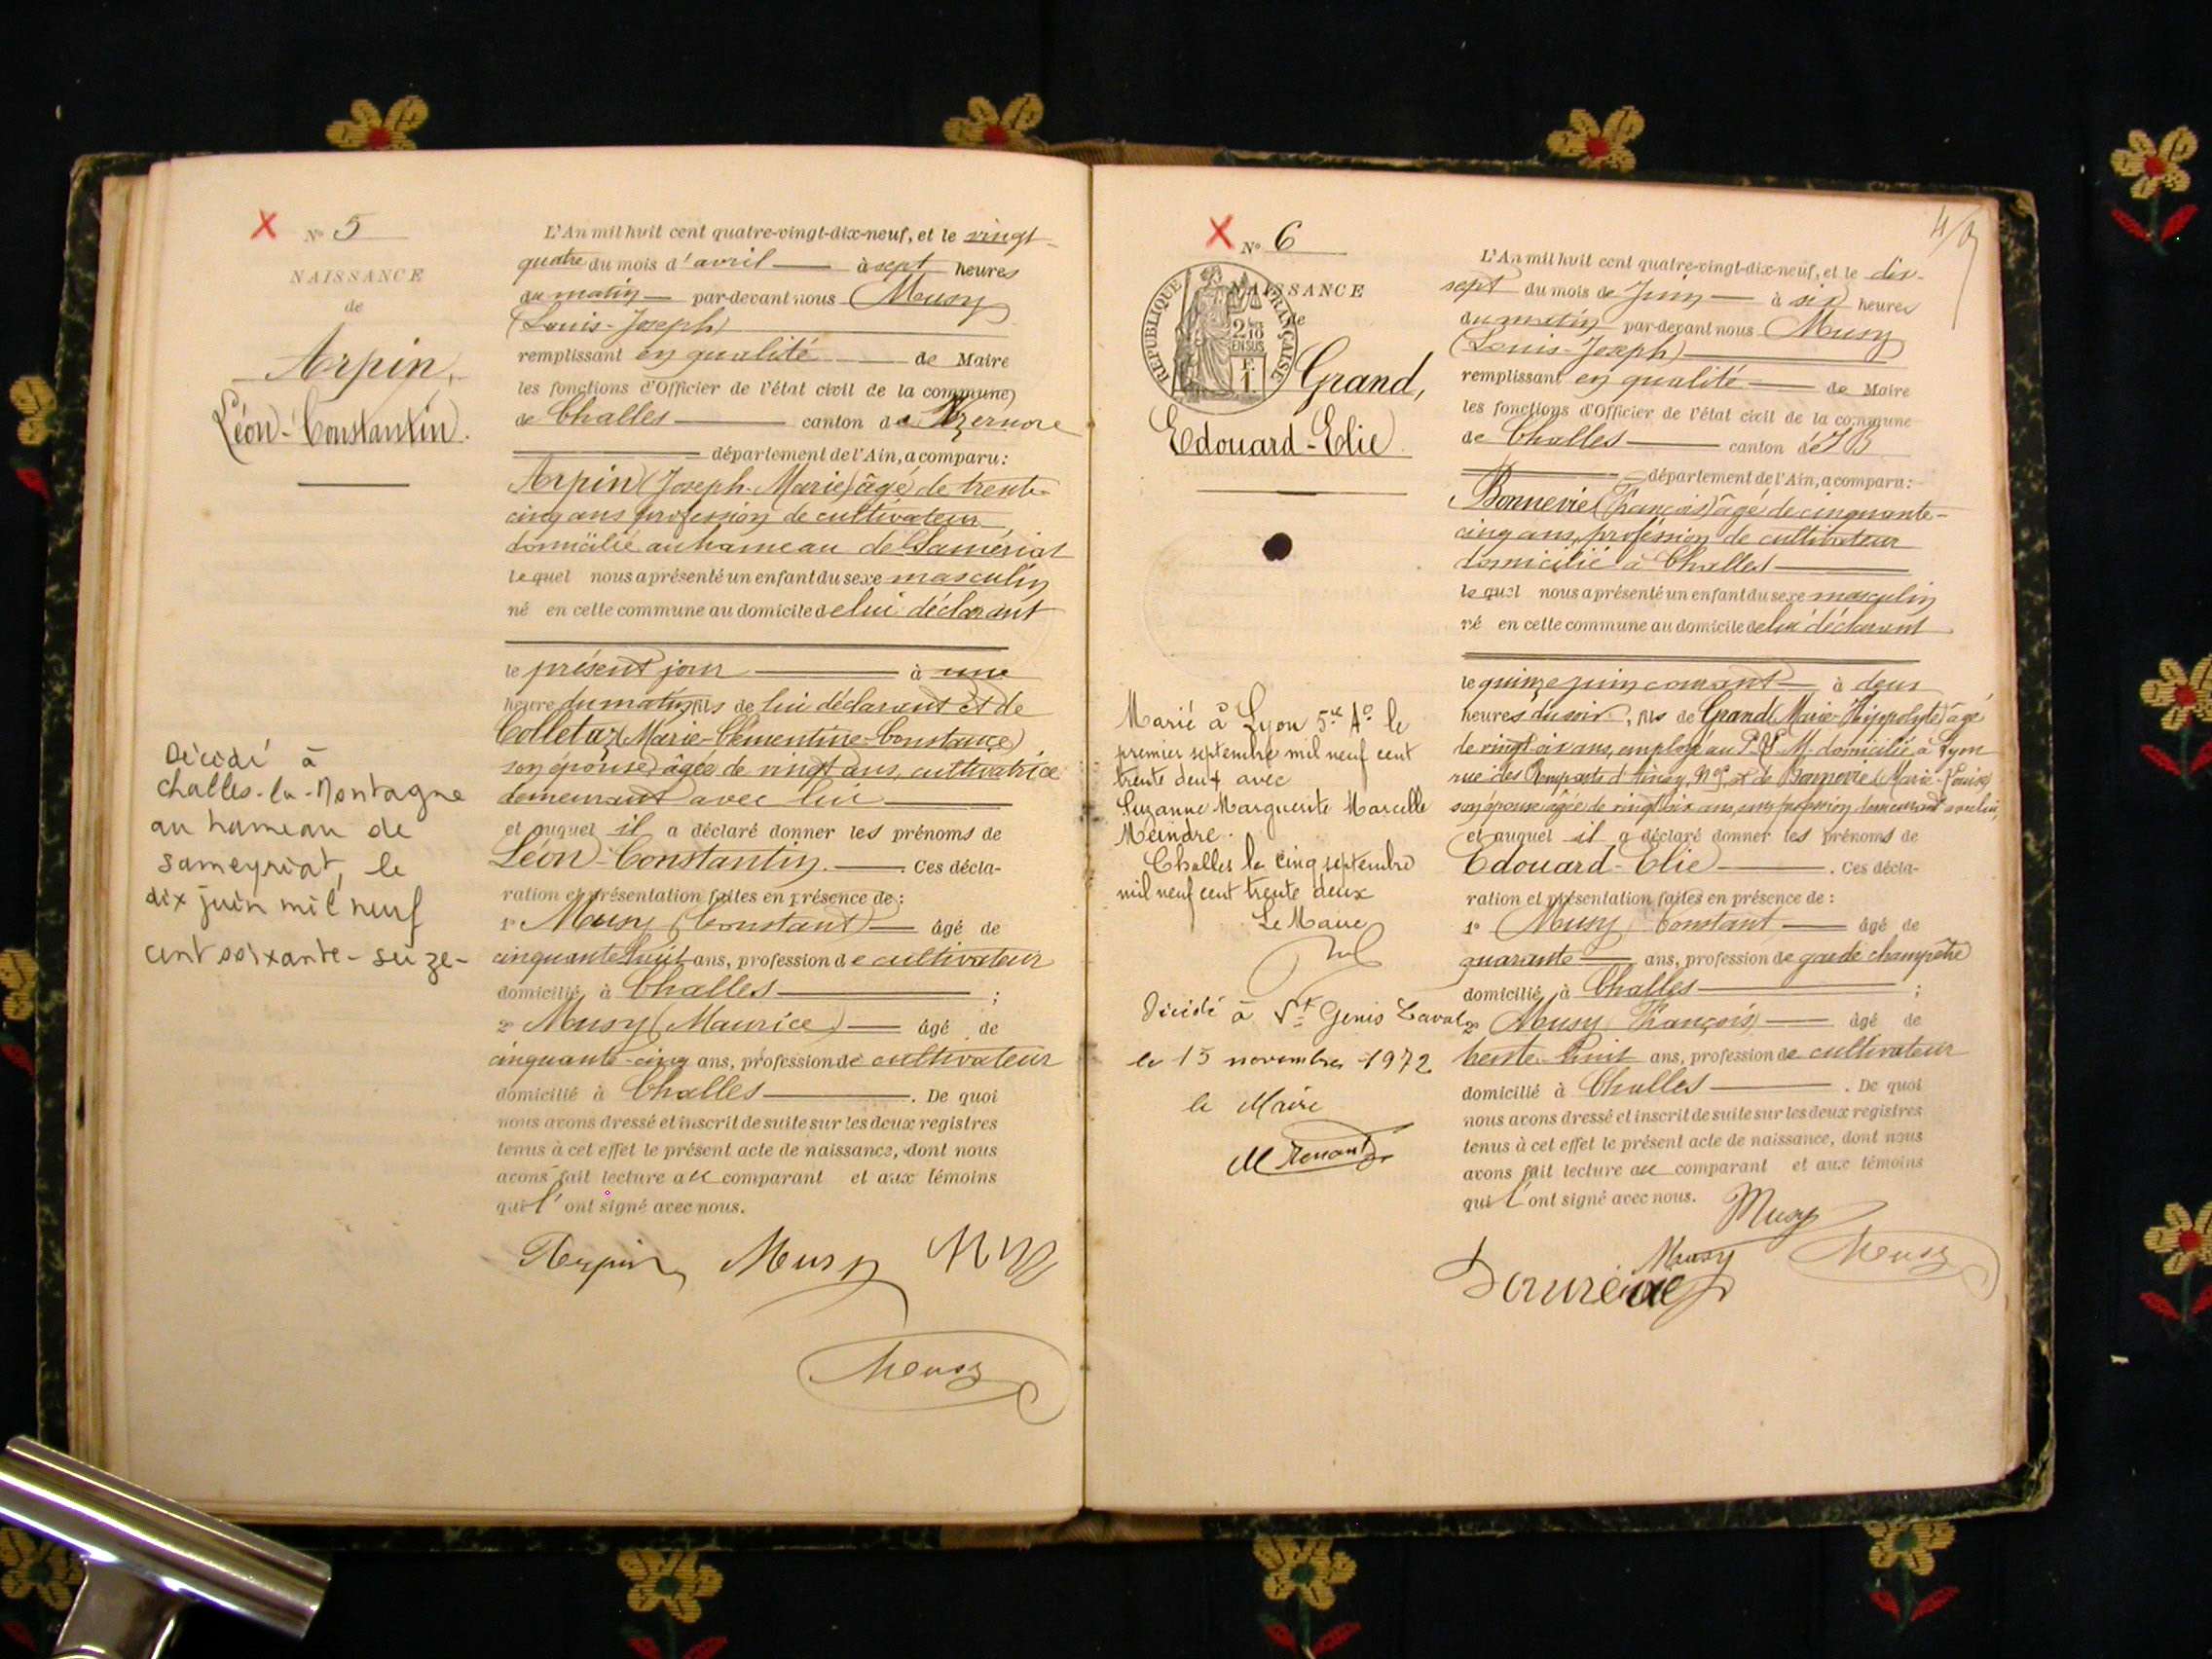 X N° 5
NAISSANCE
de
Arpin,
Léon-Constantin.
Décédé à
Challes-la-Montagne
au hameau de
Sameyriat, le
dix juin mil neuf
cent soixante-seize-
L'An mil huit cent quatre-vingt-dix-neuf, et le vingt-
quatre du mois d'avril à sept heures
du matin par-devant nous Musy
(Louis-Joseph)
remplissant en qualité de Maire
les fonctions d'Officier de l'état civil de la commune
de Challes canton de Izernore
département de l'Ain, a comparu:
Arpin (Joseph-Marie) âgé de trente-
cinq ans profession de cultivateur
domicilié au hameau de Samériat
lequel nous a présenté un enfant du sexe masculin
né en cette commune au domicile de lui déclarant
le présent jour à une
heure du matin, fils de lui déclarant et de
Colletaz (Marie-Clémentine-Constance)
son épouse, âgée de vingt ans, cultivatrice
demeurant avec lui
et auquel il a déclaré donner les prénoms de
Léon-Constantin. Ces décla-
ration et présentation faites en présence de:
1° Musy (Constant) âgé de
cinquante huit ans, profession de cultivateur
domicilié à Challes ;
2° Musy (Maurice) âgé de
cinquante-cinq ans, profession de cultivateur
domicilié à Challes . De quoi
nous avons dressé et inscrit de suite sur les deux registres
tenus à cet effet le présent acte de naissance, dont nous
avons fait lecture au comparant et aux témoins
qui l'ont signé avec nous.
Arpin Musy
Musy
X N° 6
NAISSANCE
de
RÉPUBLIQUE FRANÇAISE
2/10
EN SUS
F.
1
Grand,
Edouard-Elie.
Marié à Lyon 5e Ao le
premier septembre mil neuf cent
trente deux avec
Suzanne Marguerite Marcelle
Meindre.
Challes le cinq septembre
mil neuf cent trente deux
Le Maire
Décédé à St Genis Laval
le 15 novembre 1972
le Maire
L'An mil huit cent quatre-vingt-dix-neuf, et le dix-
sept du mois de Juin à six heures
du matin par-devant nous Musy
(Louis-Joseph)
remplissant en qualité de Maire
les fonctions d'Officier de l'état civil de la commune
de Challes canton d
département de l'Ain, a comparu:
Bonnevie (François) âgé de cinquante-
cinq ans, profession de cultivateur
domicilié à Challes
lequel nous a présenté un enfant du sexe masculin
né en cette commune au domicile de lui déclarant
le quinze juin courant à deux
heures du soir, fils de Grand (Marie-Hippolyte) âgé
de vingt six ans, employé au P.L.M. domicilié à Lyon
rue des Remparts d'Ainay, N° et de Bonnevie (Marie-Louise)
son épouse âgée de vingt six ans, sans profession demeurant avec lui,
et auquel il a déclaré donner les prénoms de
Edouard-Elie . Ces décla-
ration et présentation faites en présence de:
1° Musy, Constant âgé de
quarante ans, profession de garde champêtre
domicilié à Challes ;
2° Musy (François) âgé de
trente-huit ans, profession de cultivateur
domicilié à Challes . De quoi
nous avons dressé et inscrit de suite sur les deux registres
tenus à cet effet le présent acte de naissance, dont nous
avons fait lecture au comparant et aux témoins
qui l'ont signé avec nous.
Musy
Musy Musy